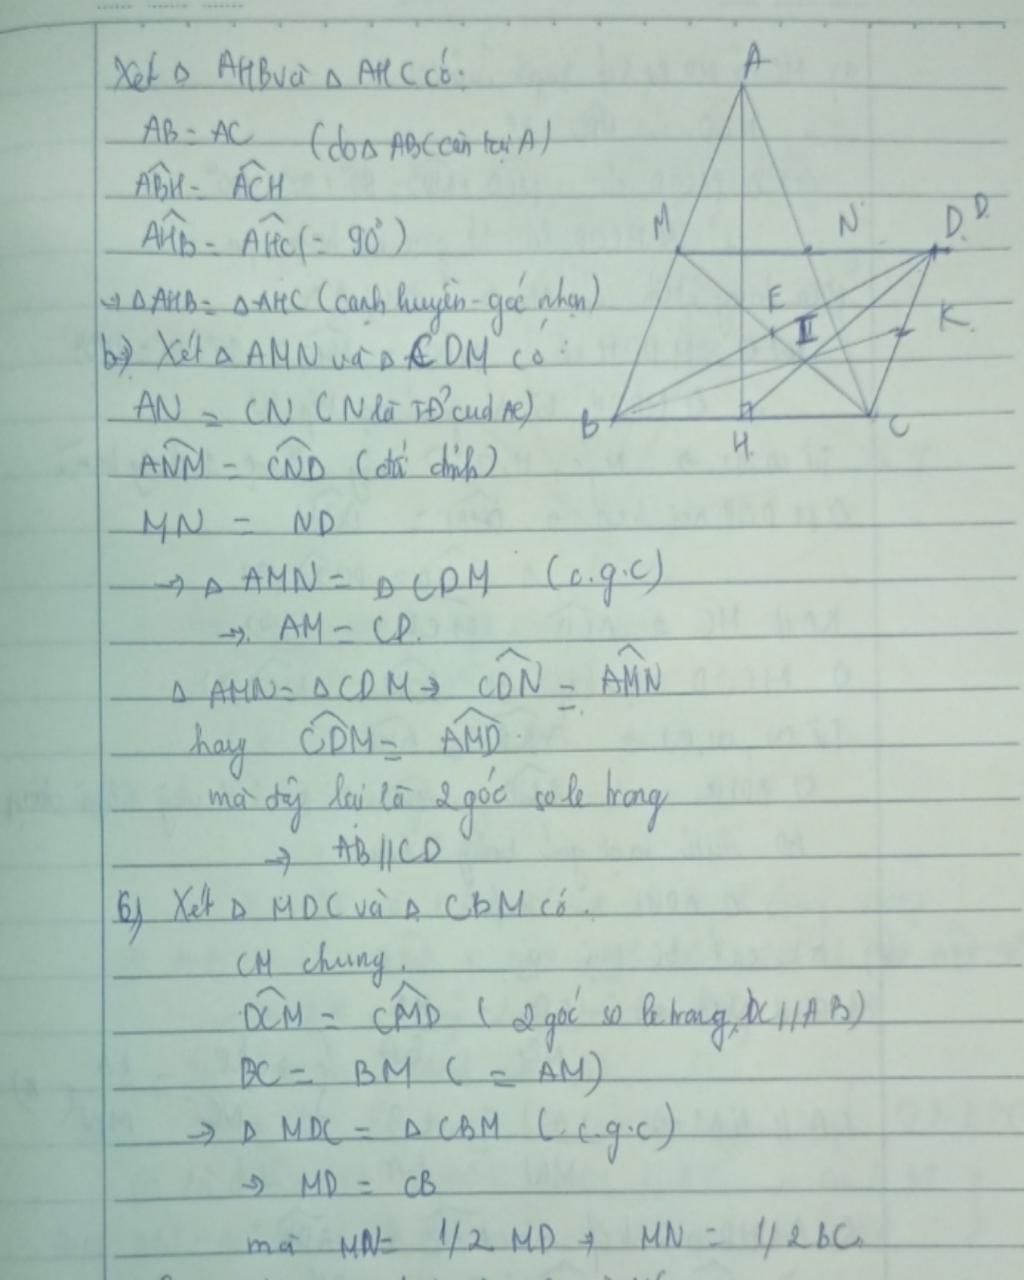 Xét Δ AHB và Δ AHC có:
AB = AC (do Δ ABC cân tại A)
ABH = ACH
AHB = AHC (= 90°)
→ Δ AHB = Δ AHC (cạnh huyền - góc nhọn)
b) Xét Δ AMN và Δ CDM có:
AN = CN (N là TĐ của AC)
ANM = CND (đối đỉnh)
MN = ND
→ Δ AMN = Δ CDM (c.g.c)
→ AM = CD.
Δ AMN = Δ CDM → CDN = AMN
hay CDM = AMD.
mà đây lại là 2 góc so le trong
→ AB // CD
Xét Δ MDC và Δ CBM có.
CM chung.
DCM = CMD ( 2 góc so le trong, DC // AB)
DC = BM ( = AM)
→ Δ MDC = Δ CBM (c.g.c)
→ MD = CB
mà MN = 1/2 MD → MN = 1/2 BC
A
M
N
D.
D.
E
I
K.
B
H
C